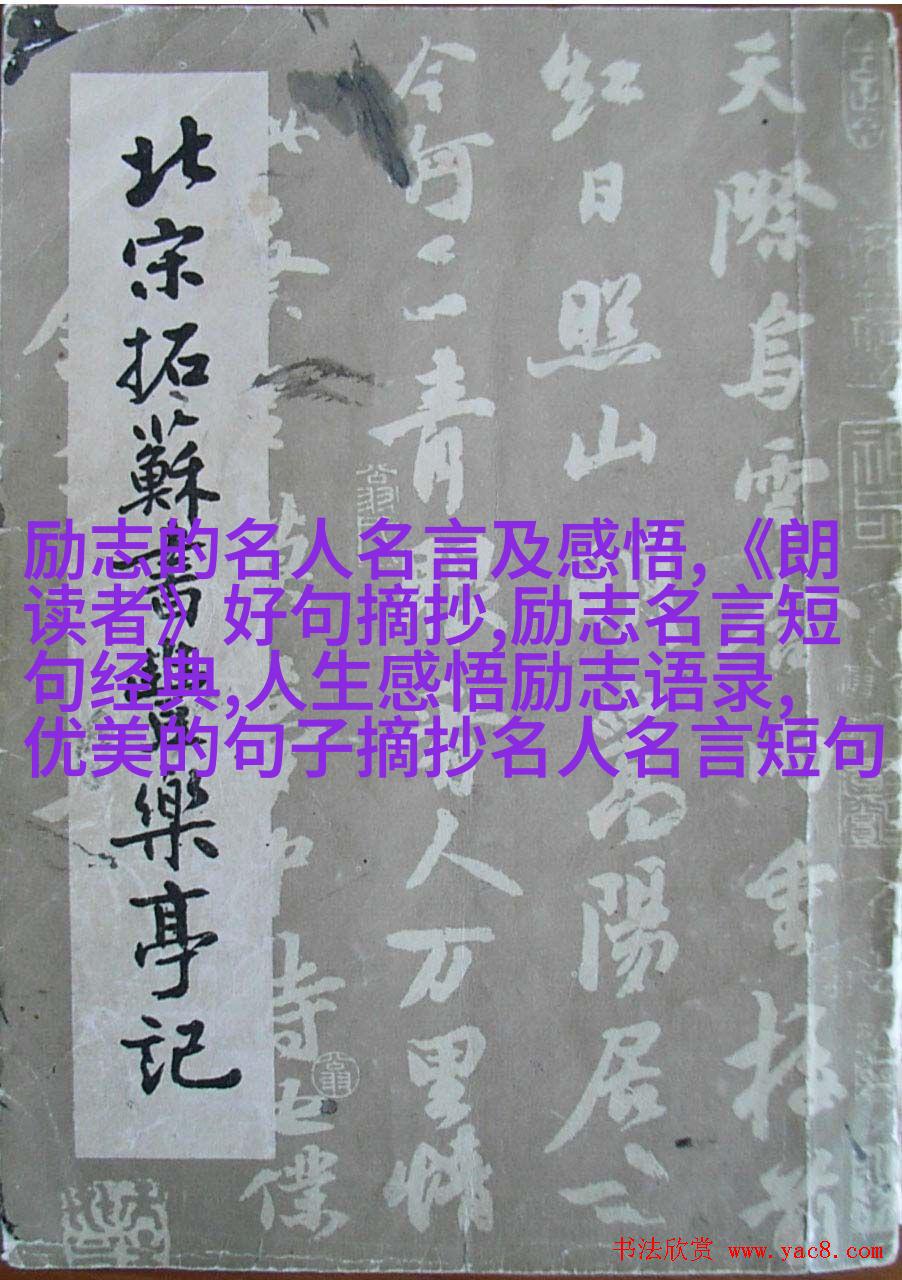 天際烏雲含雨重樓前
紅日照山明嵩陽居士
今何在青眼看人万里情
中詩也僕
北宋拓蘇書豐樂亭記
励志的名人名言及感悟,《朗
读者》好句摘抄,励志名言短
句经典,人生感悟励志语录,
优美的句子摘抄名人名言短句
书法欣赏 www.yac8.com